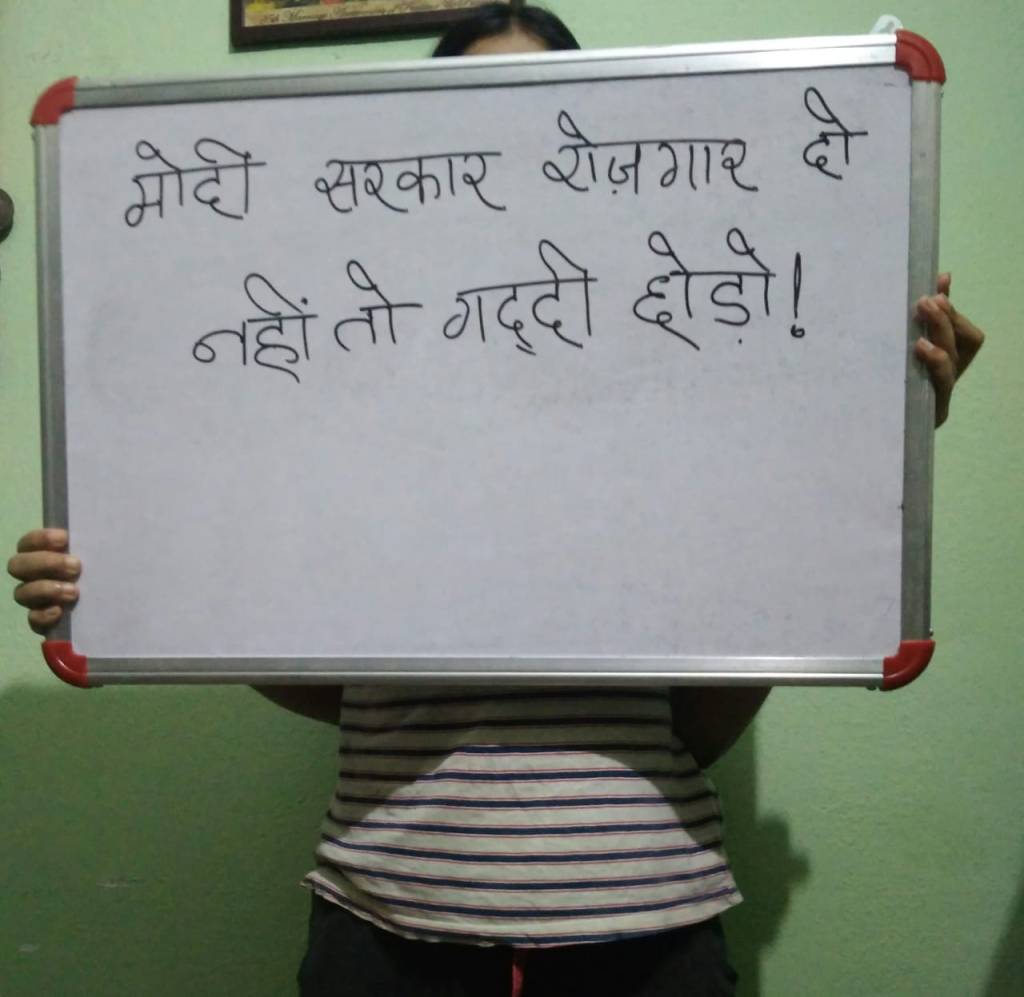 मोदी सरकार रोज़गार दो
नहीं तो गद्दी छोड़ो!